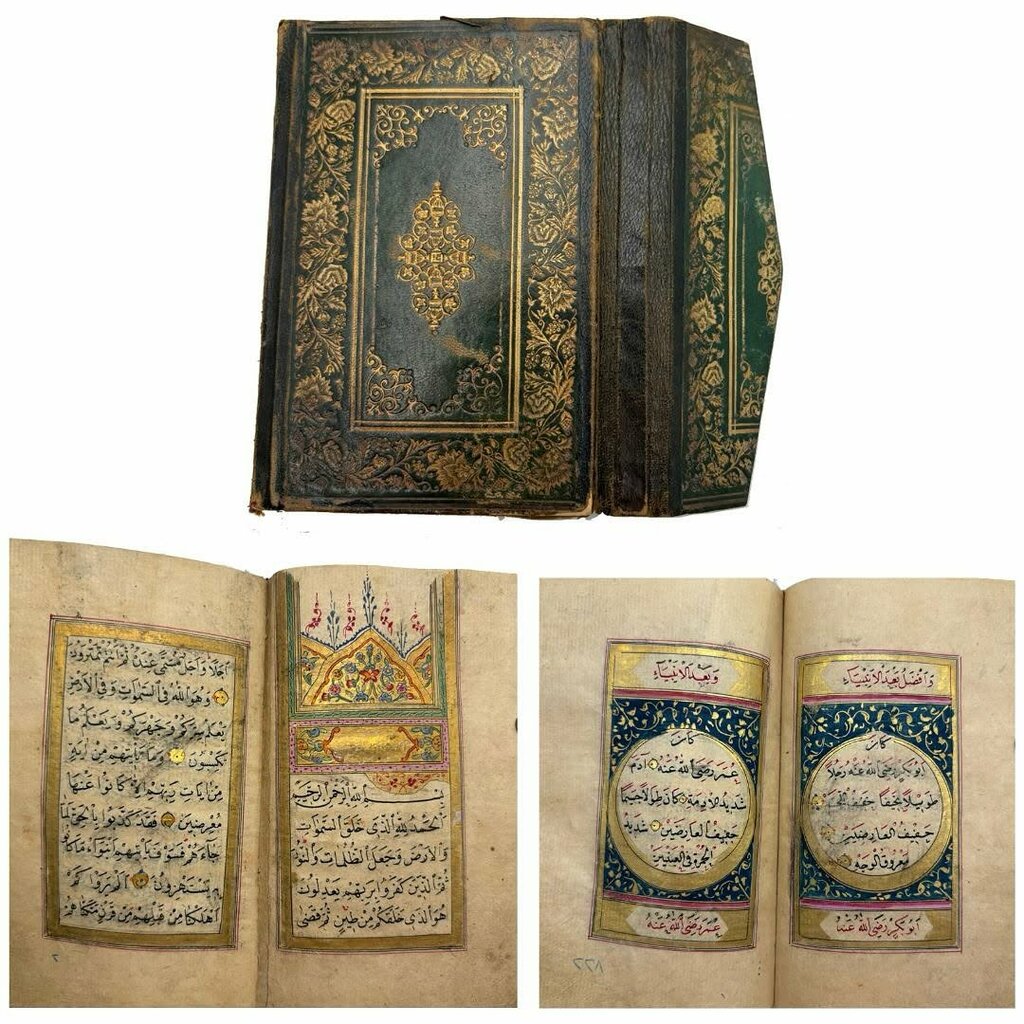 بسم الله الرحمن الرحيم
الحمد لله الذي خلق السموات
والارض وجعل الظلمات والنور
ثم الذين كفروا بربهم يعدلون
هو الذي خلقكم من طين ثم قضى
اجلا واجل مسمى عنده ثم انتم تمترون
وهو الله في السموات وفي الارض
يعلم سركم وجهركم ويعلم ما
تكسبون وما تأتيهم من اية
من ايات ربهم الا كانوا عنها
معرضين فقد كذبوا بالحق لما
جاءهم فسوف يأتيهم انبؤا ما كانوا
به يستهزؤن الم يروا كم
اهلكنا من قبلهم من قرن مكناهم
٢
وافضل بعد الانبياء
كان
ابو بكر رضي الله عنه رجلا
طويلا نحيفا خفيف
خفيف العارضين
معروق الوجه
ابو بكر رضي الله عنه
وبعد الانبياء
كان
عمر رضي الله عنه آدم
شديد الادمة كان طوالا جسيما
خفيف العارضين شديد
الحمرة في العينين
عمر رضي الله عنه